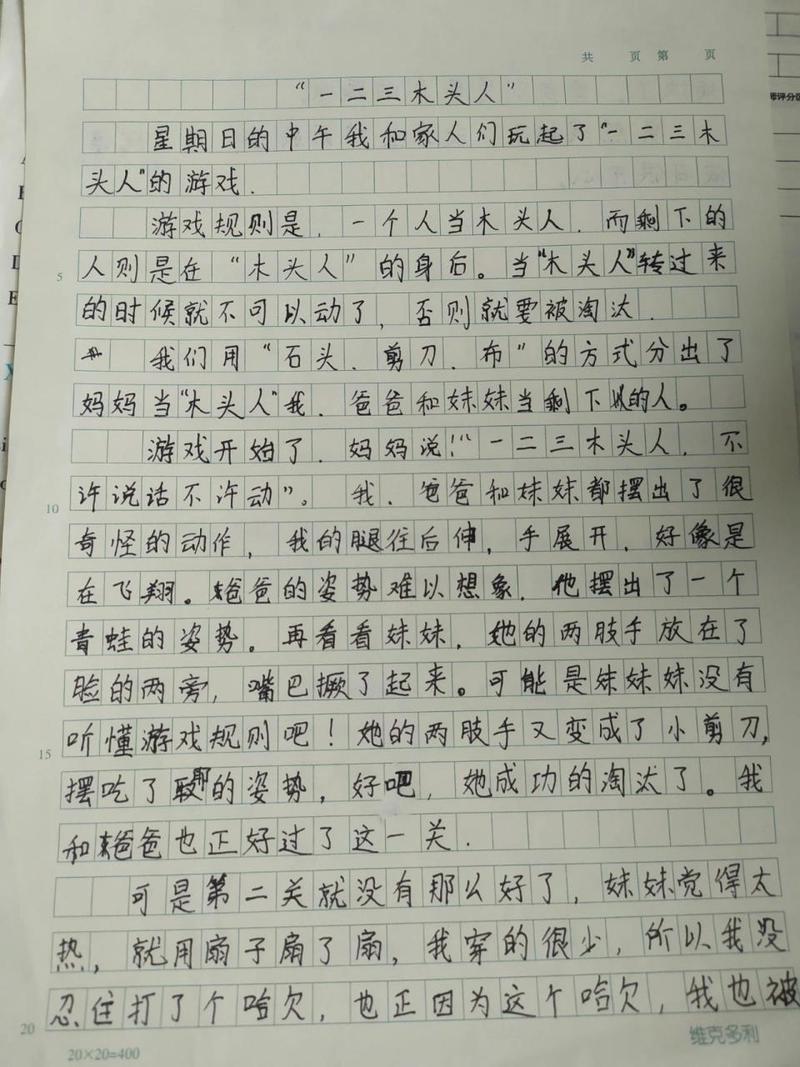 共 页 第 页
“一二三木头人”
星期日的中午我和家人们玩起了“一二三木
头人”的游戏.
游戏规则是,一个人当木头人.而剩下的
5 人则是在“木头人”的身后。当“木头人”转过来
的时候就不可以动了,否则就要被淘汰.
我们用“石头、剪刀、布”的方式分出了
妈妈当“木头人”我、爸爸和妹妹当剩下的人。
游戏开始了.妈妈说!“一二三木头人.不
10 许说话不许动”。我、爸爸和妹妹都摆出了很
奇怪的动作,我的腿往后伸,手展开.好像是
在飞翔。爸爸的姿势难以想象.他摆出了一个
青蛙的姿势。再看看妹妹.她的两肢手放在了
脸的两旁,嘴巴撅了起来。可能是妹妹妹没有
15 听懂游戏规则吧!她的两肢手又变成了小剪刀,
摆吃了耶的姿势,好吧,她成功的淘汰了。我
和爸爸也正好过了这一关.
可是第二关就没有那么好了,妹妹觉得太
热,就用扇子扇了扇,我穿的很少,所以我没
20 忍住打了个哈欠,也正因为这个哈欠,我也被
20×20=400
维克多利
师评分区